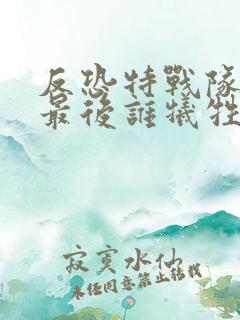 反恐特戰隊
最後誰犧牲
寂寞水仙
未經同意禁止轉載